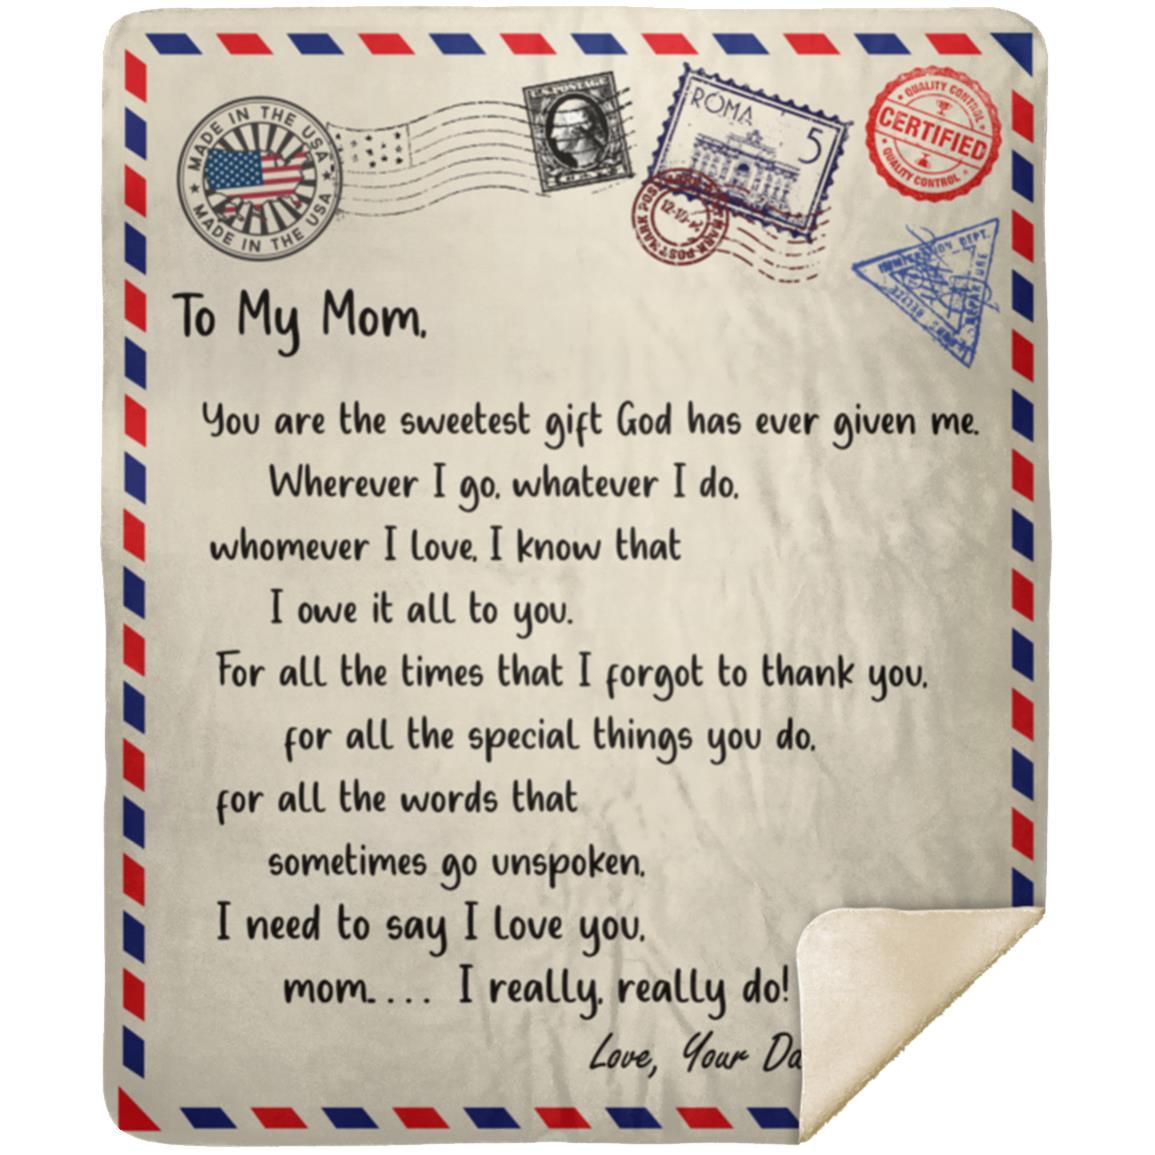 MADE IN THE USA
MADE IN THE USA
U.S.POSTAGE
ROMA
5
QUALITY CONTROL
CERTIFIED
QUALITY CONTROL
To My Mom,
You are the sweetest gift God has ever given me.
Wherever I go, whatever I do,
whomever I love, I know that
I owe it all to you.
For all the times that I forgot to thank you,
for all the special things you do,
for all the words that
sometimes go unspoken,
I need to say I love you,
mom.... I really, really do!
Love, Your Da